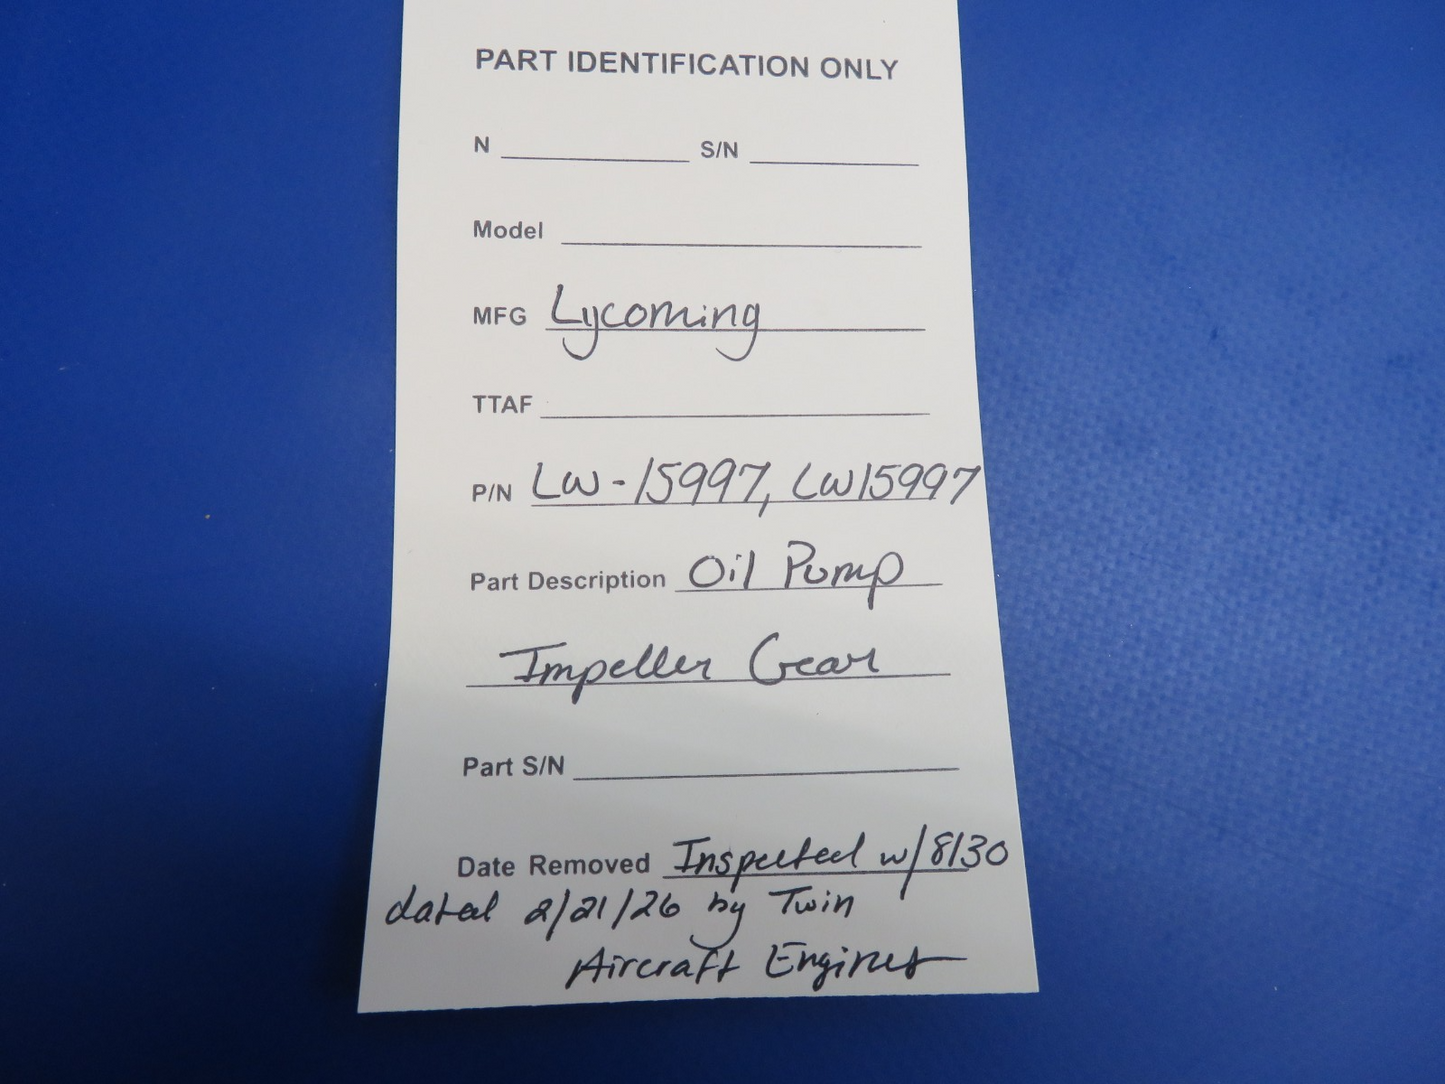 PART IDENTIFICATION ONLY
N S/N
Model
MFG Lycoming
TTAF
P/N LW-15997, LW15997
Part Description Oil Pump
Impeller Gear
Part S/N
Date Removed Inspected w/8130
dated 2/21/26 by Twin
Aircraft Engines